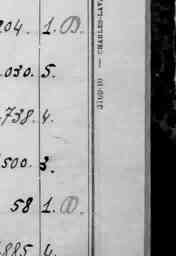 204. 1. D.
.030. 5.
.738. 4.
500. 3.
58 1. D.
.885. 4.
— CHARLES-LAV